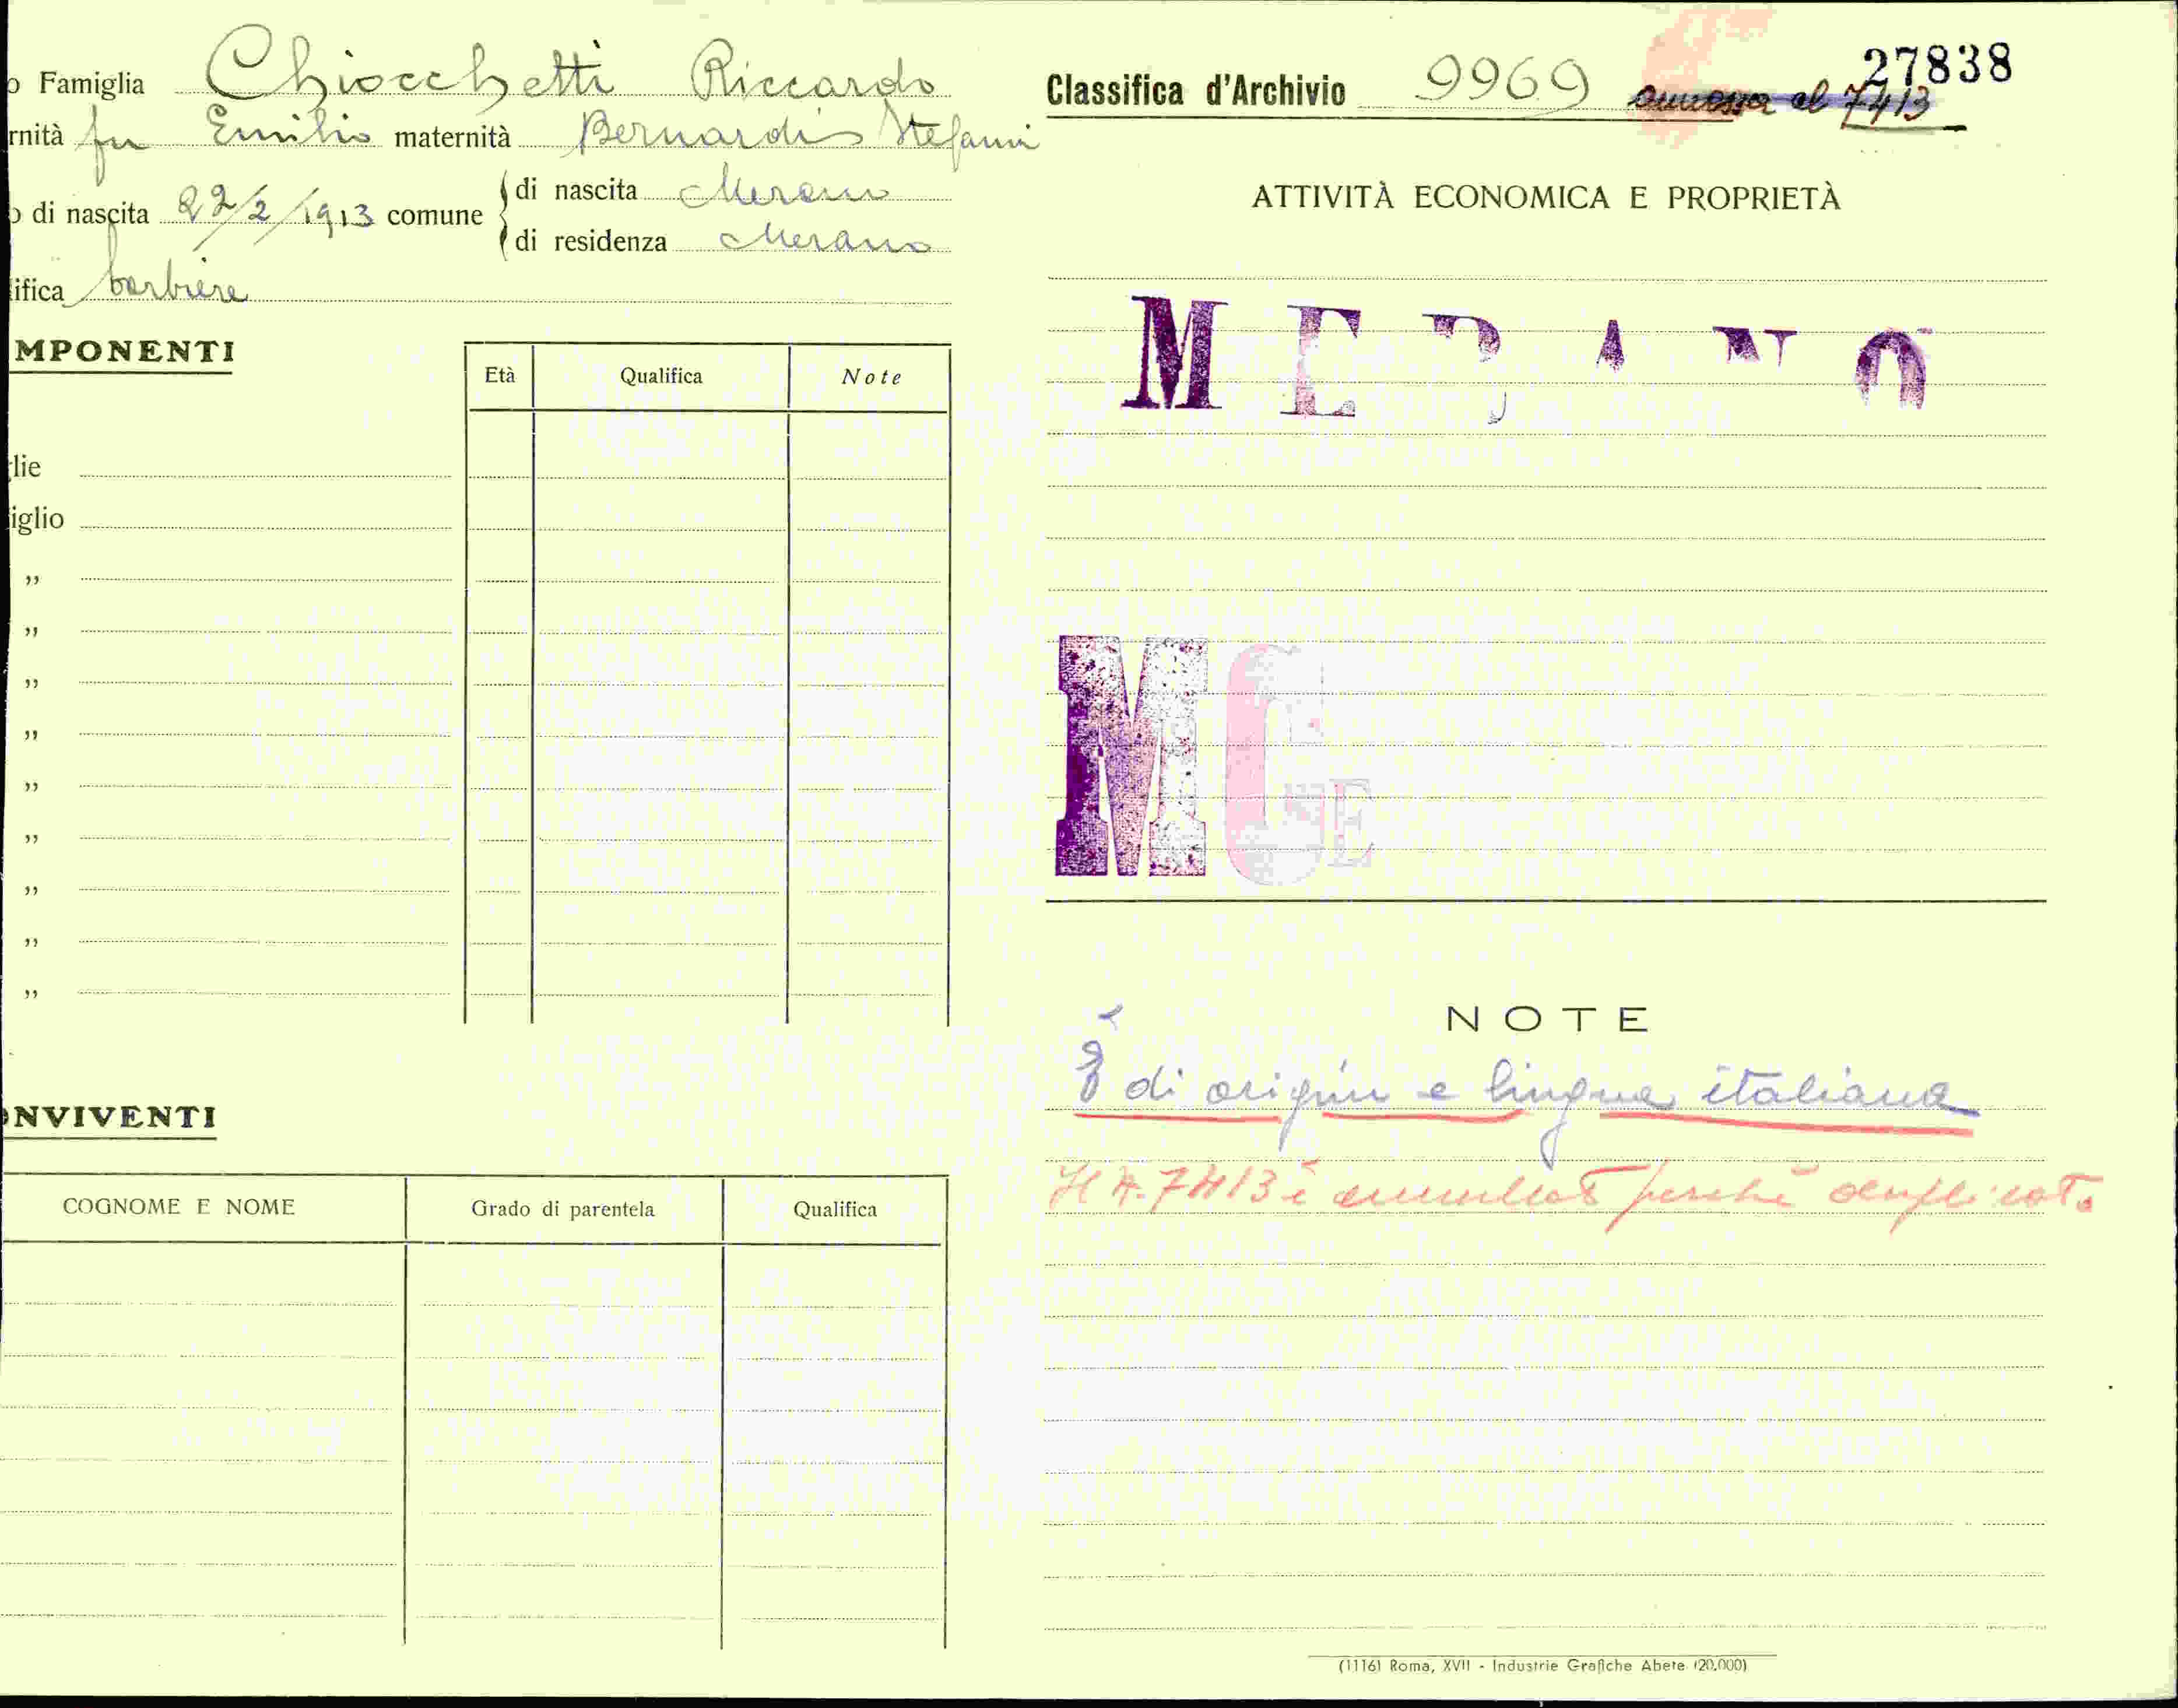 o Famiglia Chiocchetti Riccardo
rnità fu Emilio maternità Bernardis Stefania
o di nascita 22/2/1913 comune di nascita Merano
di residenza Merano
ifica barbiere
MPONENTI
Età Qualifica Note
lie
iglio
"
"
"
"
"
"
"
"
"
ONVIVENTI
COGNOME E NOME Grado di parentela Qualifica
27838
Classifica d'Archivio 9969 annessa al 7413
ATTIVITÀ ECONOMICA E PROPRIETÀ
MERANO
M G E
NOTE
È di origine e lingua italiana
Il N. 7413 è annullato perché duplicato
(1116) Roma, XVII - Industrie Grafiche Abete (20.000)